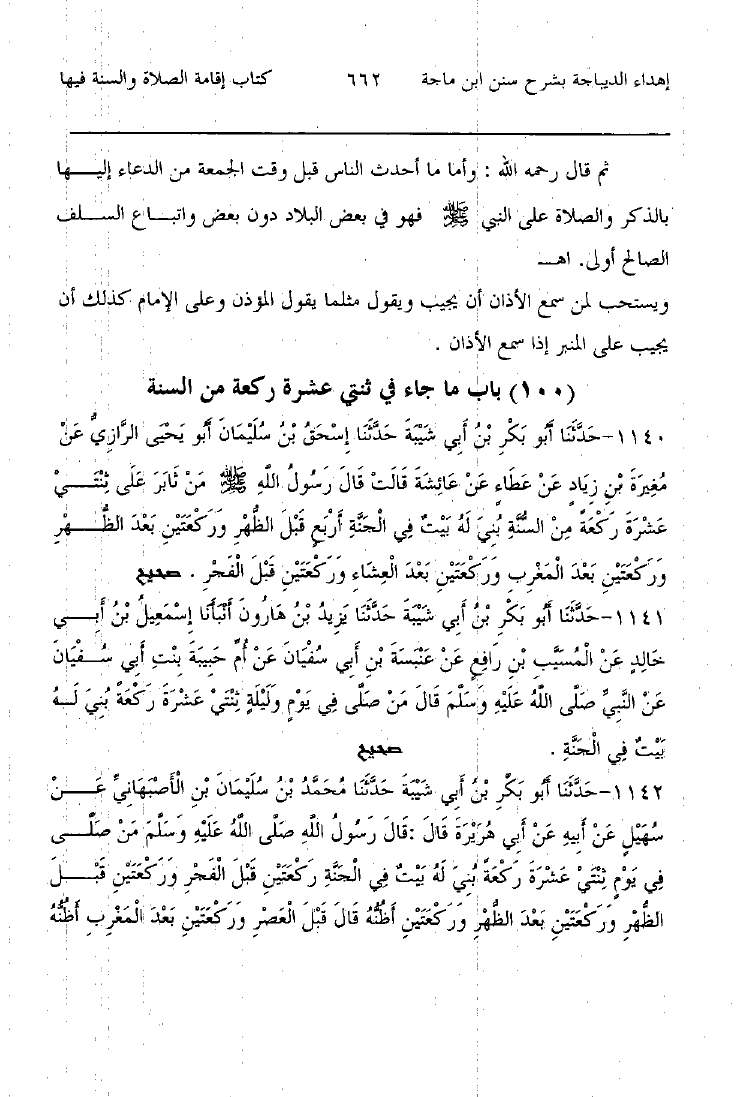 إهداء الديباجة بشرح سنن ابن ماجة ٦٦٢ كتاب إقامة الصلاة والسنة فيها
ثم قال رحمه الله : وأما ما أحدث الناس قبل وقت الجمعة من الدعاء إليـــها
بالذكر والصلاة على النبي ﷺ فهو في بعض البلاد دون بعض واتبـاع الســلف
الصالح أولى. اهــ
ويستحب لمن سمع الأذان أن يجيب ويقول مثلما يقول المؤذن وعلى الإمام كذلك أن
يجيب على المنبر إذا سمع الأذان .
(١٠٠) باب ما جاء في ثنتي عشرة ركعة من السنة
١١٤٠-حَدَّثَنَا أَبُو بَكْرِ بْنُ أَبِي شَيْبَةَ حَدَّثَنَا إِسْحَقُ بْنُ سُلَيْمَانَ أَبُو يَحْيَى الرَّازِيُّ عَنْ
مُغِيرَةَ بْنِ زِيَادٍ عَنْ عَطَاءٍ عَنْ عَائِشَةَ قَالَتْ قَالَ رَسُولُ اللَّهِ ﷺ مَنْ ثَابَرَ عَلَى ثِنْتَــيْ
عَشْرَةَ رَكْعَةً مِنْ السُّنَّةِ بُنِيَ لَهُ بَيْتٌ فِي الْجَنَّةِ أَرْبَعٍ قَبْلَ الظُّهْرِ وَرَكْعَتَيْنِ بَعْدَ الظُّــهْرِ
وَرَكْعَتَيْنِ بَعْدَ الْمَغْرِبِ وَرَكْعَتَيْنِ بَعْدَ الْعِشَاءِ وَرَكْعَتَيْنِ قَبْلَ الْفَجْرِ . صحيح
١١٤١-حَدَّثَنَا أَبُو بَكْرِ بْنُ أَبِي شَيْبَةَ حَدَّثَنَا يَزِيدُ بْنُ هَارُونَ أَنْبَأَنَا إِسْمَعِيلُ بْنُ أَبِــي
خَالِدٍ عَنْ الْمُسَيَّبِ بْنِ رَافِعٍ عَنْ عَنْبَسَةَ بْنِ أَبِي سُفْيَانَ عَنْ أُمِّ حَبِيبَةَ بِنْتِ أَبِي سُــفْيَانَ
عَنْ النَّبِيِّ صَلَّى اللَّهُ عَلَيْهِ وَسَلَّمَ قَالَ مَنْ صَلَّى فِي يَوْمٍ وَلَيْلَةٍ ثِنْتَيْ عَشْرَةَ رَكْعَةً بُنِيَ لَــهُ
بَيْتٌ فِي الْجَنَّةِ . صحيح
١١٤٢-حَدَّثَنَا أَبُو بَكْرِ بْنُ أَبِي شَيْبَةَ حَدَّثَنَا مُحَمَّدُ بْنُ سُلَيْمَانَ بْنِ الْأَصْبَهَانِيِّ عَــنْ
سُهَيْلٍ عَنْ أَبِيهِ عَنْ أَبِي هُرَيْرَةَ قَالَ :قَالَ رَسُولُ اللَّهِ صَلَّى اللَّهُ عَلَيْهِ وَسَلَّمَ مَنْ صَلَّــى
فِي يَوْمٍ ثِنْتَيْ عَشْرَةَ رَكْعَةً بُنِيَ لَهُ بَيْتٌ فِي الْجَنَّةِ رَكْعَتَيْنِ قَبْلَ الْفَجْرِ وَرَكْعَتَيْنِ قَبْــلَ
الظُّهْرِ وَرَكْعَتَيْنِ بَعْدَ الظُّهْرِ وَرَكْعَتَيْنِ أَظُنُّهُ قَالَ قَبْلَ الْعَصْرِ وَرَكْعَتَيْنِ بَعْدَ الْمَغْرِبِ أَظُنُّهُ